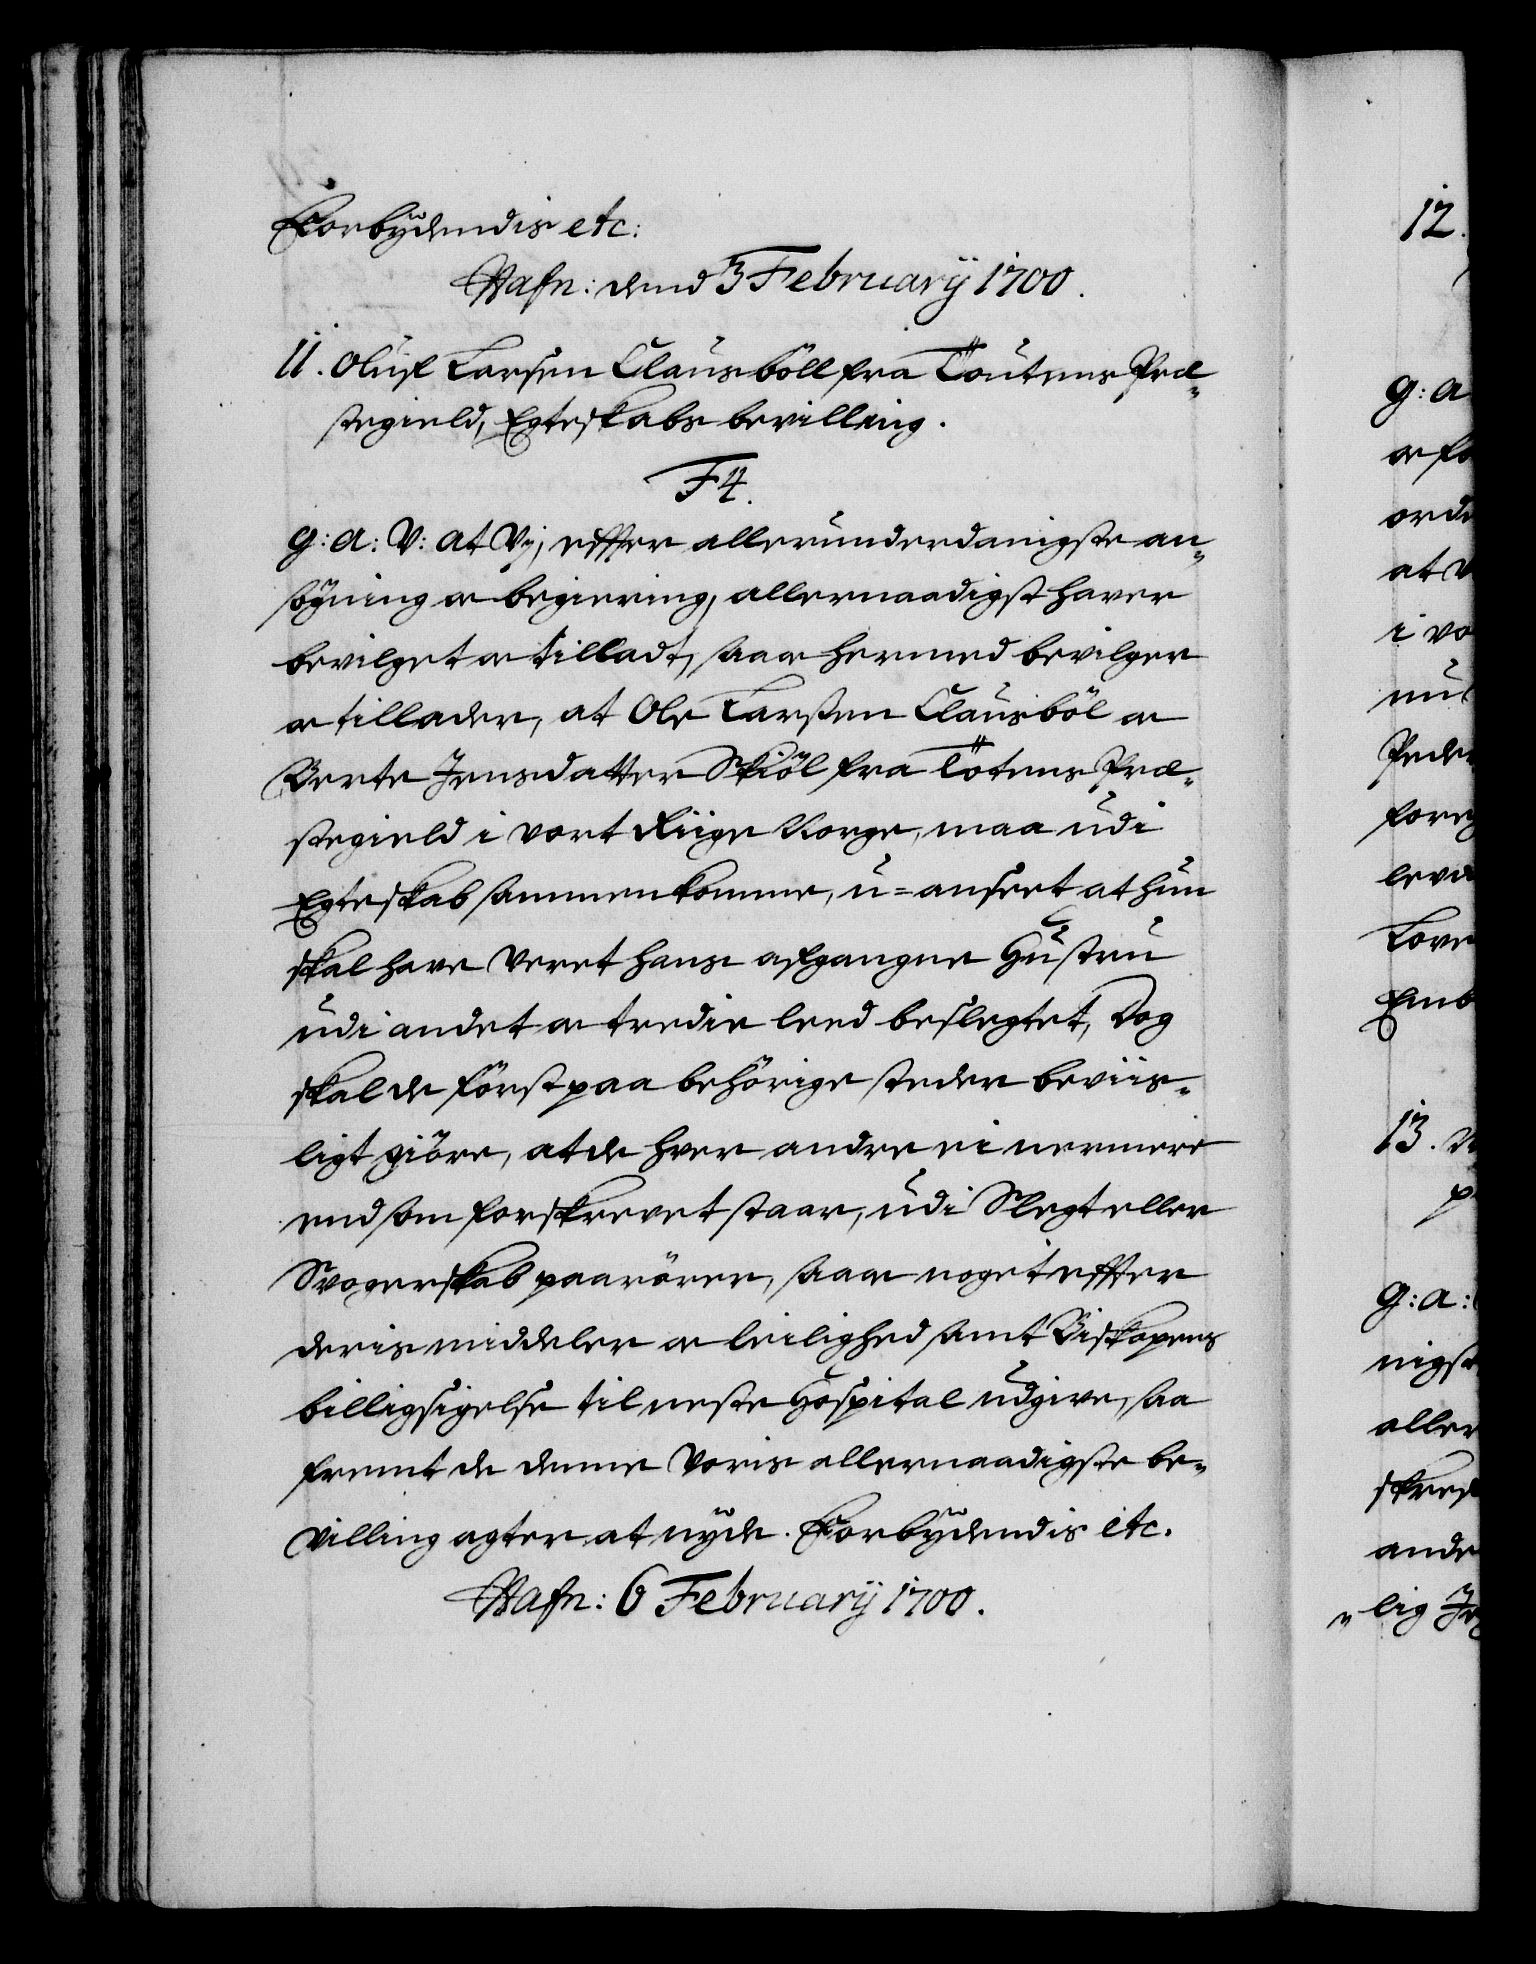 Forbydendis etc:
Hafn: dend 3 February 1700.
11. Oluf Larsen Clausböll fra Toutens Præ-
stegield, Egteskabs bevilling.
F4.
G: A: V: at Vj, effter allerunderdanigste an-
søgning oc begiering, allernaadigst haver
bevilget oc tilladt, saa oc hermed bevilger
oc tillader, at Ole Larsen Clausböl oc
Berte Jensdatter Skiöl fra Totens Præ-
stegield i vort Riige Norge, maa udi
Egteskab sammenkomme, u=anseet at hun
skal have veret hans afgangne Hustru
udi andet oc tredie leed beslegtet, Dog
skal de först paa behörige steder beviis-
ligt giöre, at de hver andre ei nermere
end som forskrevet staar, udi Slegt eller
Svogerskab paarörer, saa oc noget effter
deris middeler oc leilighed samt Biskopens
billigsigelse til neste Hospital udgive, saa
fremt de denne Voris allernaadigste be-
villing agter at nyde. Forbydendis etc.
Hafn: 6 February 1700.
12.
G: A
oc fo
orde
at V
i vo
nul
Peder
foreg
leve
Love
Emb
13.
G: A:
nigst
aller
skref
ande
lig